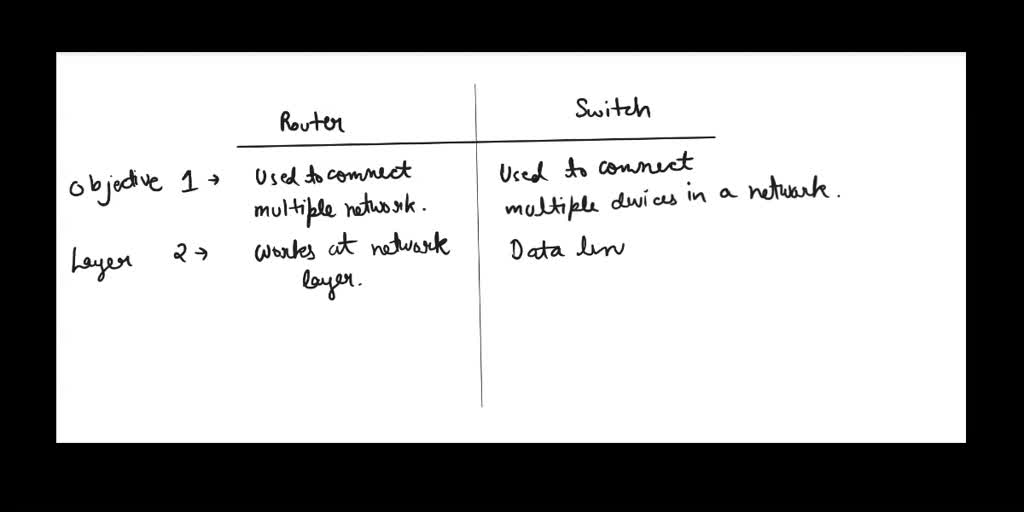 Router
Switch
Objective 1 → Used to connect
multiple network.
Used to connect
multiple devices in a network.
Layer 2 → Works at network
layer.
Data lin